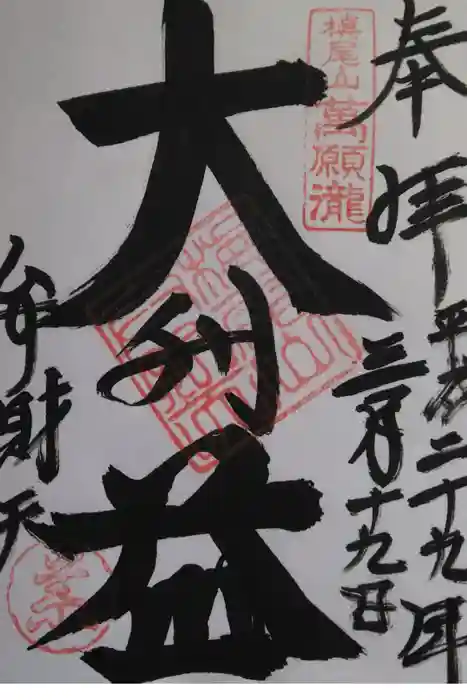 奉拝
平成二十九年
三月十九日
槙尾山
萬願瀧
大利益
弁財天